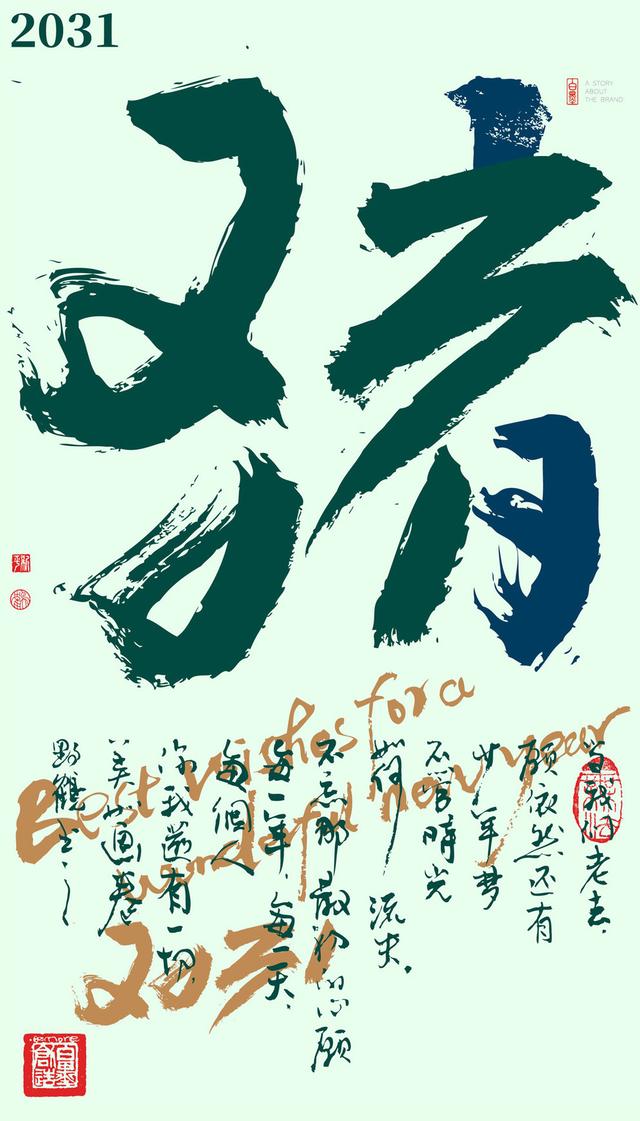 2031
百墨
A STORY
ABOUT
THE BRAND
Best wishes for a
wonderful new year
2031
当我们老去。
願依然还有
少年梦
不管時光
如何
流失。
不忘那最初的心願
每一年，每一天。
每個人
你我還有一切，
美如畫卷
野鶴書之
百墨創造